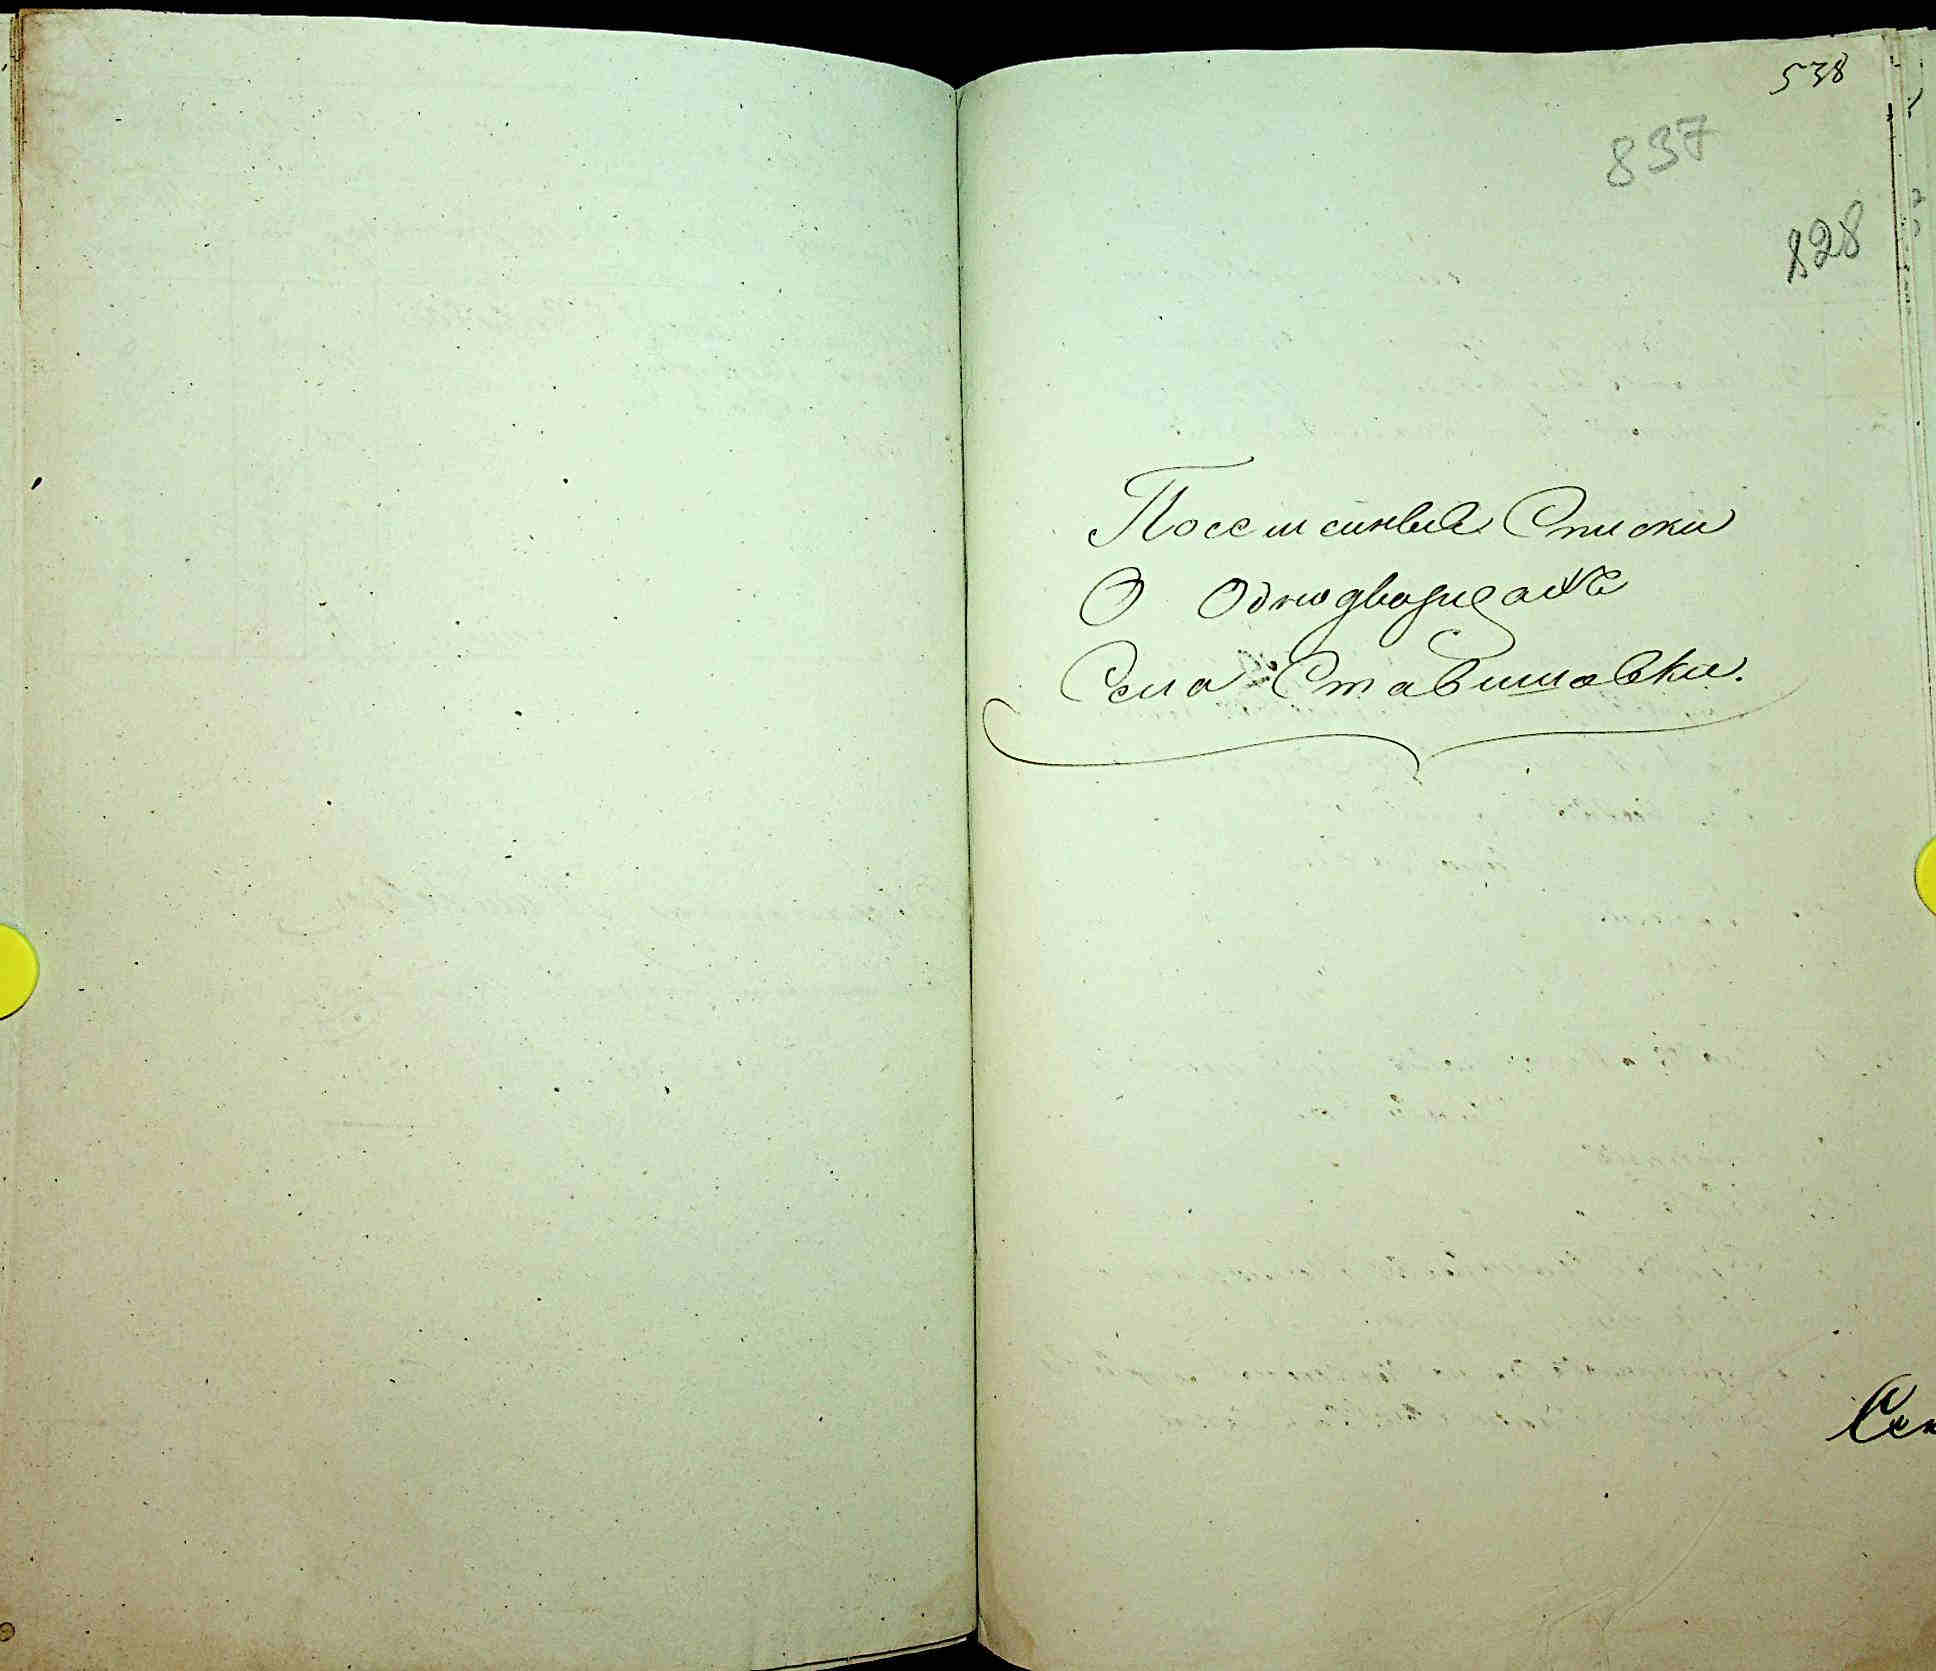 538
837
828
Посемейные Списки
О Однодворцахъ
Села Ставишовки.